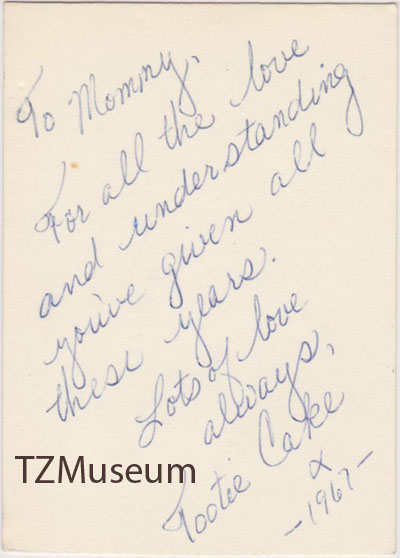 To Mommy,
For all the love
and understanding
you've given all
these years.
Lots of love
always,
Tootie Cake
x
-1967-
TZMuseum